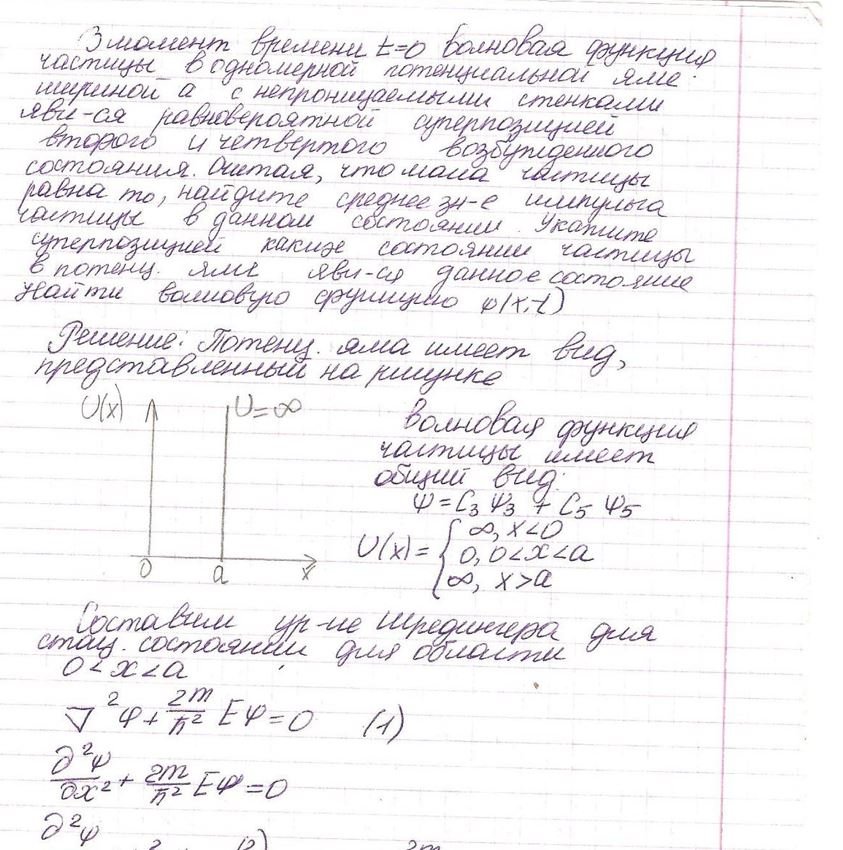 З момент времени t=0 волновая функция
частицы в одномерной потенциальной яме
шириной а с непроницаемыми стенками
яви-ся равновероятной суперпозицией
второго и четвертого возбужденного
состояния. Считая, что масса частицы
равна m₀, найдите среднее зн-е импульса
частицы в данном состоянии. Укажите
суперпозицией каких состояний частицы
в потенц. яме яви-ся данное состояние
Найти волновую функцию ψ(x,t)
Решение: Потенц. яма имеет вид,
представленный на рисунке
U(x) U=∞
0 a x
Волновая функция
частицы имеет
общий вид:
Ψ=C₃Ψ₃ + C₅Ψ₅
U(x)= { ∞, x<0
0, 0<x<a
∞, x>a
Составим ур-ие Шредингера для
стац. состояний для области
0<x<a
∇²ψ + 2m/ħ² Eψ=0 (1)
∂²ψ/∂x² + 2m/ħ² Eψ=0
∂²ψ